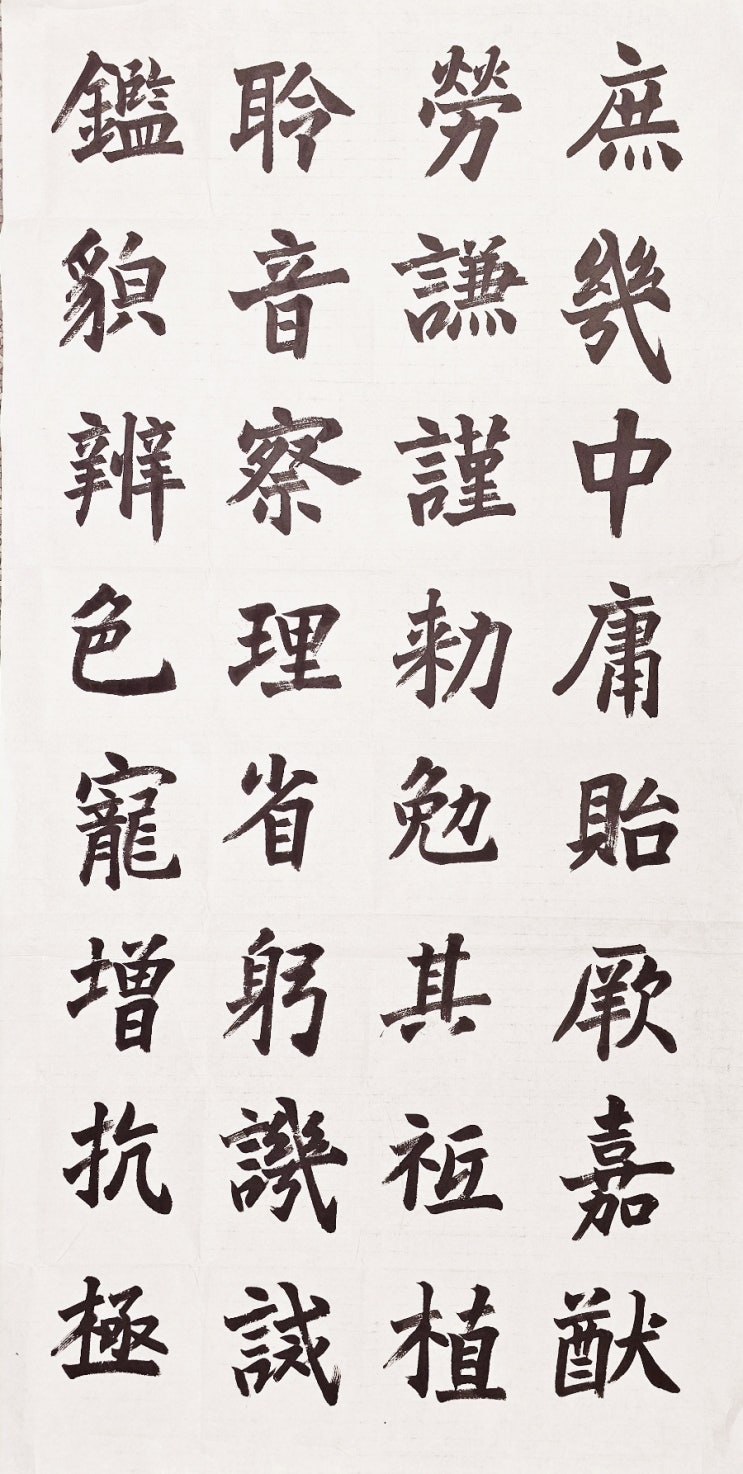 庶幾中庸貽厥嘉猷
勞謙謹勅勉其祗植
聆音察理省躬譏誡
鑑貌辨色寵增抗極